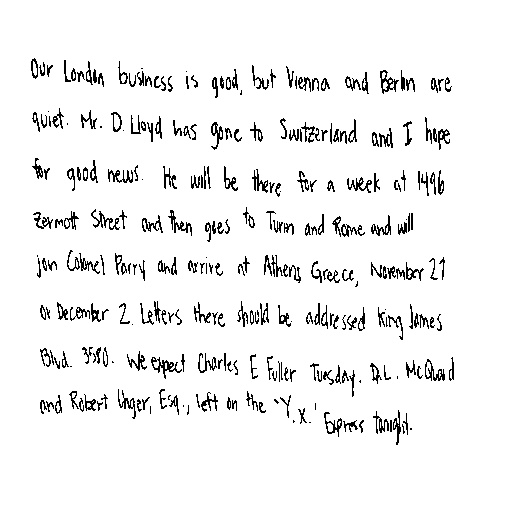 Our London business is good, but Vienna and Berlin are
quiet. Mr. D. Lloyd has gone to Switzerland and I hope
for good news. He will be there for a week at 1496
Zermott Street and then goes to Turin and Rome and will
join Colonel Parry and arrive at Athens, Greece, November 27
or December 2. Letters there should be addressed King James
Blvd. 3580. We expect Charles E Fuller Tuesday. D.L. McQuaid
and Robert Unger, Esq., left on the 'Y.X.' Express tonight.